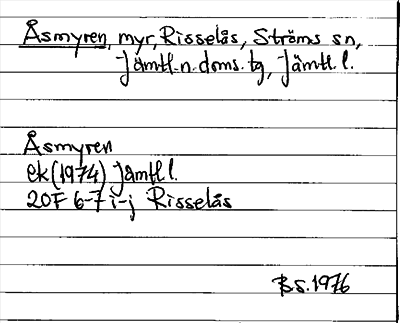 Åsmyren, myr, Risselås, Ströms sn,
Jämtl. n. doms. tg, Jämtl. l.
Åsmyren
ek (1974) Jämtl l.
20F 6-7 i-j Risselås
BS. 1976